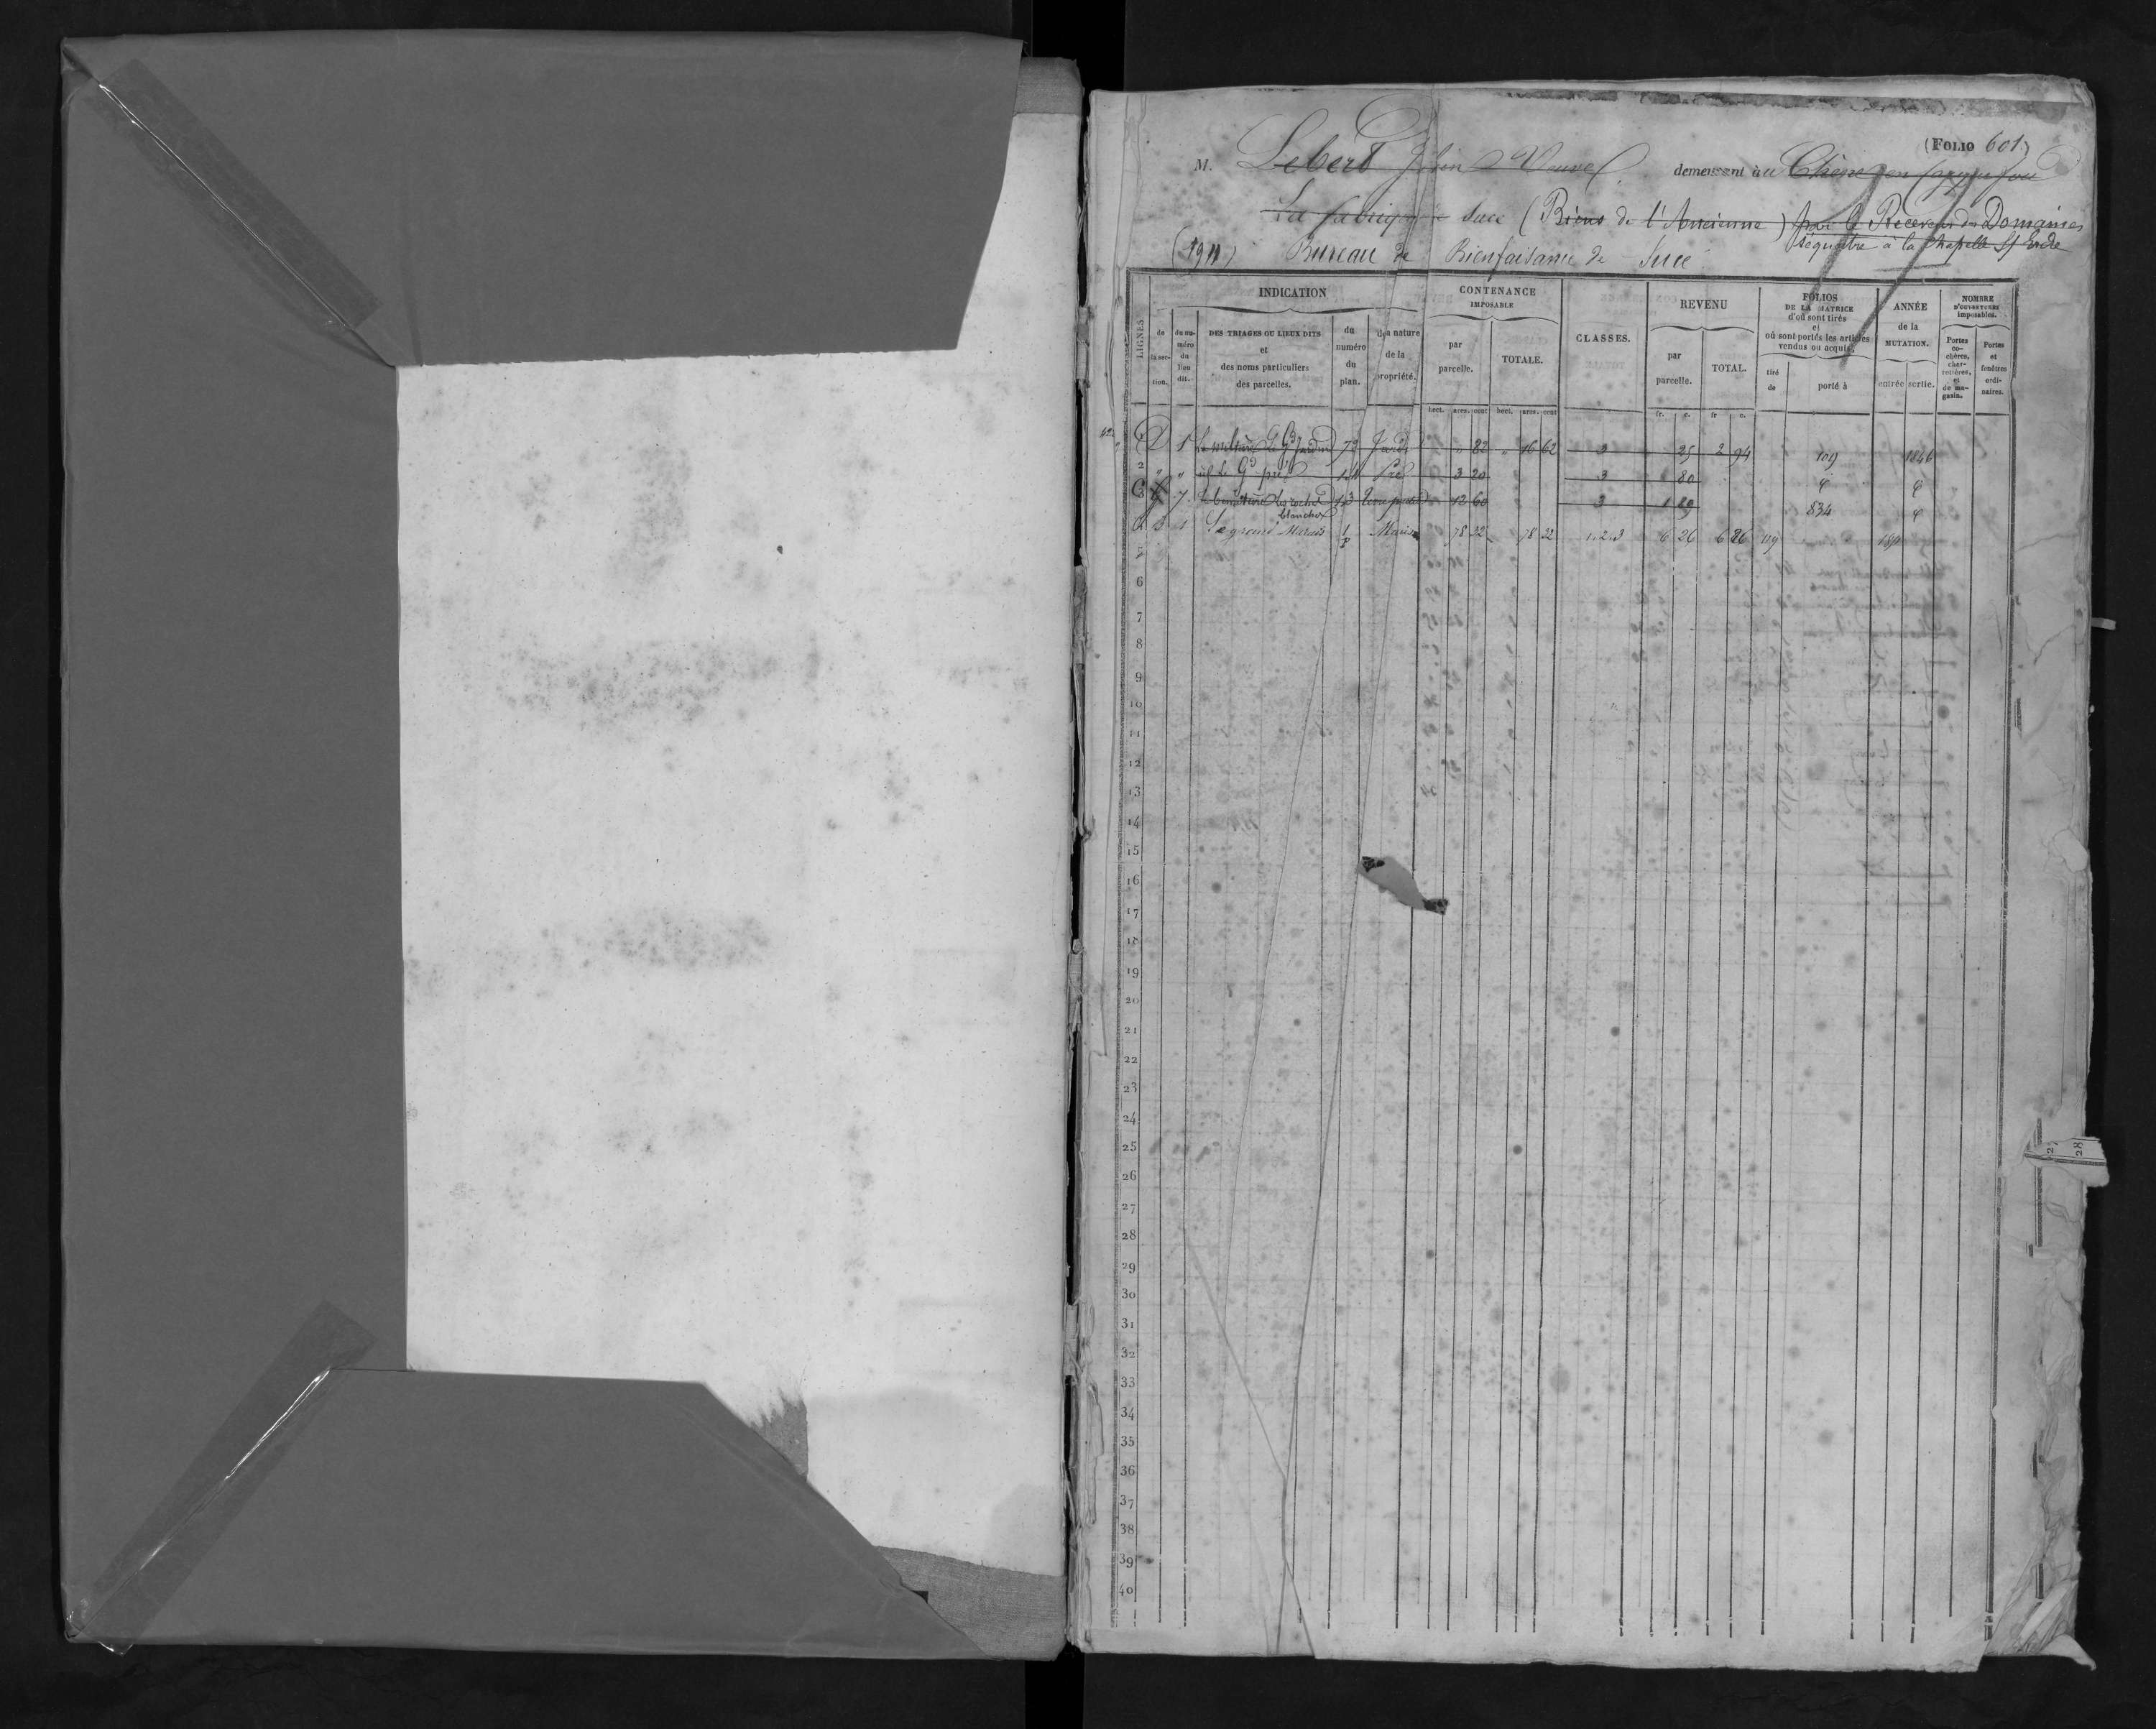 (FOLIO 601)
M. Lebert Veuve demeurant à au Chêne en
La fabrique Sucé (Biens de l'Ancienne) par le Receveur des Domaines
séquestre à la Chapelle S/ Erdre
(1911) Bureau de Bienfaisance de Sucé
LIGNES
INDICATION
de la section.
du numéro du lieu dit.
DES TRIAGES OU LIEUX DITS et des noms particuliers des parcelles.
du numéro du plan.
de la nature de la propriété.
CONTENANCE IMPOSABLE
par parcelle.
TOTALE.
hect. ares. cent
hect. ares. cent
CLASSES.
REVENU
par parcelle.
TOTAL.
fr. c.
fr c.
FOLIOS DE LA MATRICE d'où sont tirés et où sont portés les articles vendus ou acquis.
tiré de
porté à
ANNÉE de la MUTATION.
entrée
sortie.
NOMBRE D'OUVERTURES imposables.
Portes cochères, charretières, et de magasin.
Portes et fenêtres ordinaires.
D 1 Gd Jardin 72 Jardin " 82 " 16 62 2 25 2 94 109 1846
2 " " id Le Gd pré 14 Pré 3 20 3 80
3 7 blanches 12 60 3 1 89 834
4 B 1 Le grand Marais 1/8 Marais 78 32 78 32 1.2.3 6 26 6 26 119
5
6
7
8
9
10
11
12
13
14
15
16
17
18
19
20
21
22
23
24
25
26
27
28
29
30
31
32
33
34
35
36
37
38
39
40
28